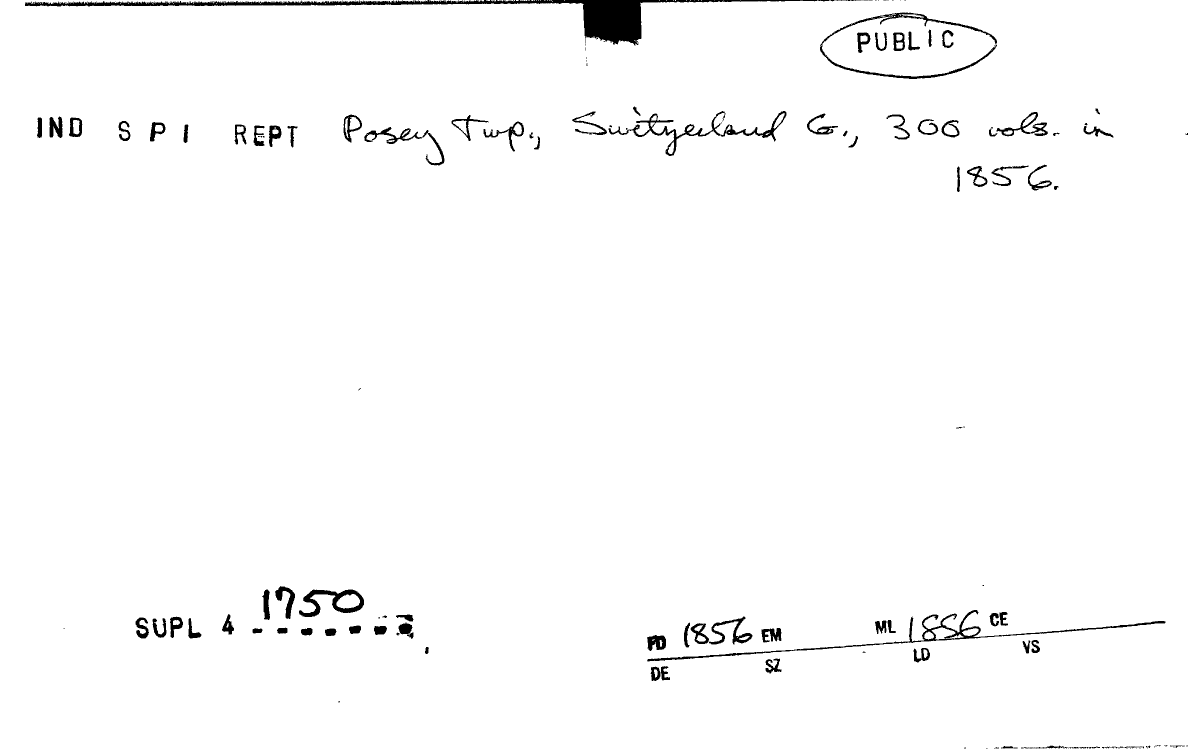 PUBLIC
IND S P I REPT Posey Twp., Switzerland Co., 300 vols. in
1856.
SUPL 4 1750
FD 1856 EM ML 1856 CE
DE SZ LD VS